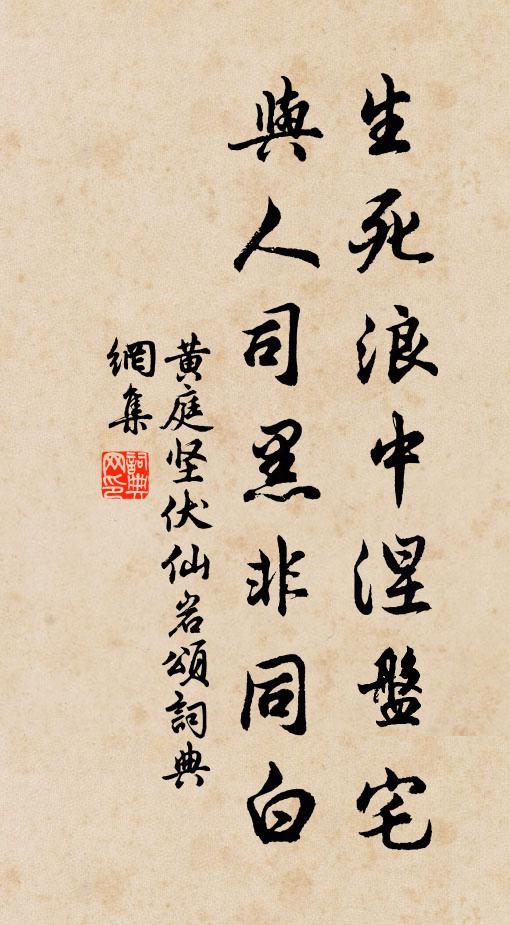 生死浪中涅盤宅
與人司黑非同白
黄庭坚伏仙岩頌詞典
網集
詞典網印